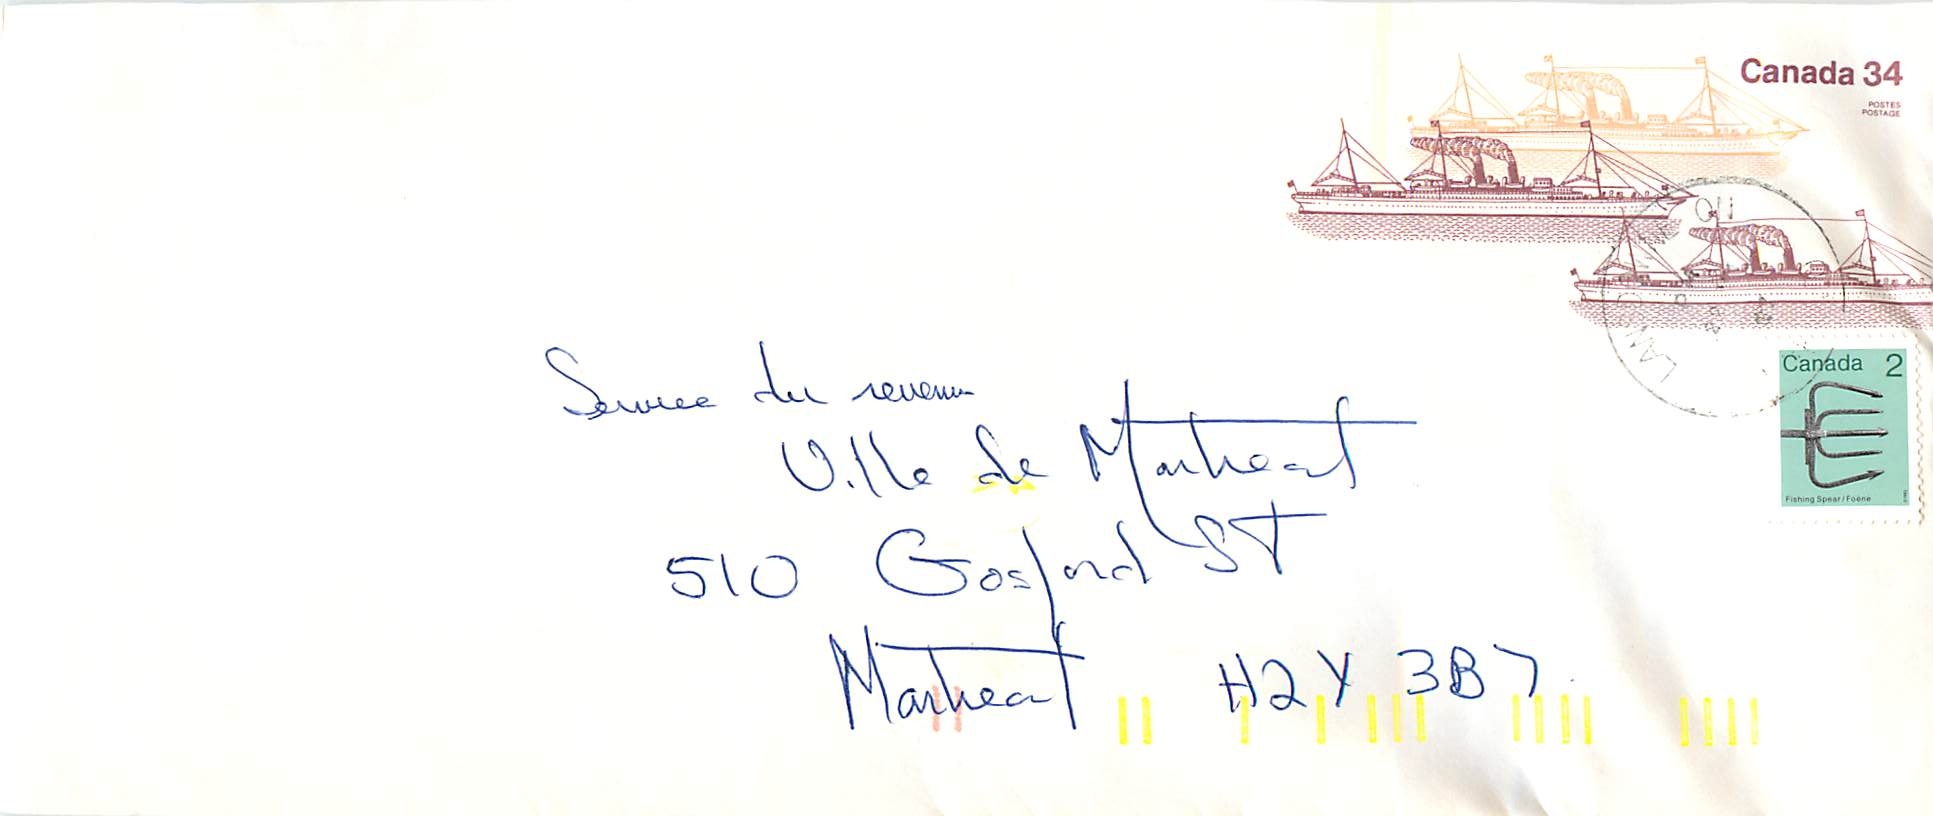 Canada 34
POSTES
POSTAGE
Canada 2
Fishing Spear / Foëne
Service du revenu
Ville de Montreal
510 Gosford ST
Montreal H2Y 3B7